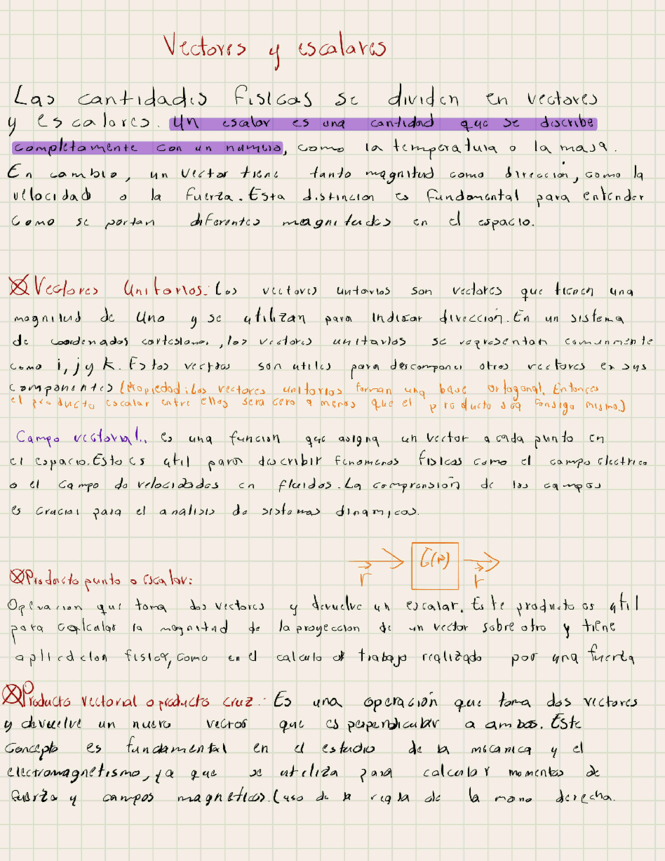 Vectores y escalares
Las cantidades fisicas se dividen en vectores
y escalares. Un escalar es una cantidad que se describe
completamente con un numero, como la temperatura o la masa.
En cambio, un vector tiene tanto magnitud como dirección, como la
velocidad o la fuerza. Esta distincion es fundamental para entender
como se portan diferentes magnitudes en el espacio.
Vectores Unitarios: Los vectores untarios son vectores que tienen una
magnitud de Uno y se utilizan para Indicar dirección. En un sistema
de coordenadas cartesiano, los vectores unitarios se representan comunmente
como i, j y k. Estos vectores son utiles para descomponer otros vectores en sus
componentes (Propiedad: Los vectores unitarios forman una base ortogonal. Entonces
el producto escalar entre ellos sera cero a menos que el producto sea consigo mismo.)
Campo vectorial: es una funcion que asigna un vector a cada punto en
el espacio. Esto es útil para describir fenomenos físicos como el campo electrico
o el campo de velocidades en fluidos. La comprensión de los campos
es crucial para el analisis de sistemas dinamicos.
r F(r) r
Producto punto o escalar:
Operacion que toma dos vectores y devuelve un escalar. Este producto es útil
para calcular la magnitud de la proyeccion de un vector sobre otro y tiene
aplicacion fisica, como en el calculo de trabajo realizado por una fuerza
Producto vectorial o producto cruz: Es una operación que toma dos vectores
y devuelve un nuevo vector que es perpendicular a ambos. Este
concepto es fundamental en el estudio de la mecanica y el
electromagnetismo, ya que se utiliza para calcular momentos de
fuerza y campos magnéticos. (uso de la regla de la mano derecha.